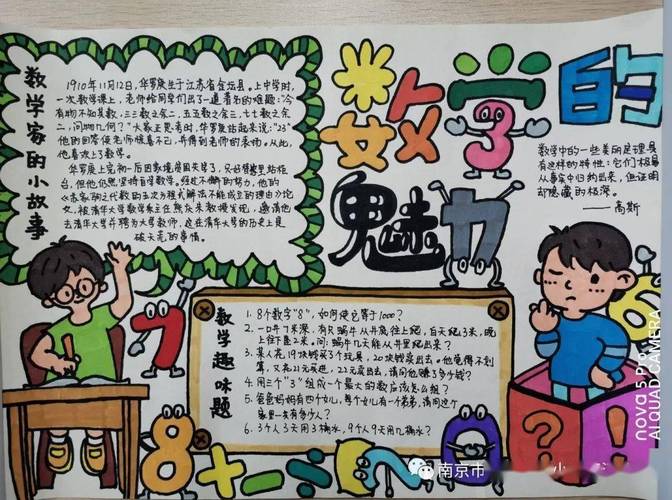 数学的
魅力
数学家的小故事
1910年11月12日，华罗庚生于江苏省金坛县。上中学时，
一次数学课上，老师给同学们出了一道著名的难题："今
有物不知其数，三三数之余二，五五数之余三，七七数之余
二，问物几何？"大家正思考时，华罗庚站起来说："23"
他的回答使老师惊喜不已，并得到老师的表扬。从此，
他喜欢上了数学。
华罗庚上完初一后因家境贫困失学了，只好替家里站柜
台，但他仍然坚持自学数学。经过不懈的努力，他的
《苏家驹之代数的五次方程式解法不能成立的理由》论
文，被清华大学数学系主任熊庆来教授发现，邀请他
去清华大学并聘为大学教师，这在清华大学的历史上是
破天荒的事情。
数学中的一些美的定理具
有这样的特性：它们极易
从事实中归纳出来，但证明
却隐藏的极深。
——高斯
数学趣味题
1. 8个数字"8"，如何使它等于1000？
2. 一口井7米深，有只蜗牛从井底往上爬，白天爬3米，晚
上往下坠2米。问蜗牛几天能从井里爬出来？
3. 某人花19块钱买了个玩具，20块钱卖出去。他觉得不划
算，又花21元买进，22元卖出去。请问他赚了多少钱？
4. 用三个"3"组成一个最大的数应该怎么组？
5. 爸爸妈妈有四个女儿，每个女儿有一个弟弟，请问这个
家里一共有多少人？
6. 3个人3天用3桶水，9个人9天用几桶水？
7
3
6
8+-÷
2
0
? !
南京市
小
nova 5 Pro
AI QUAD CAMERA